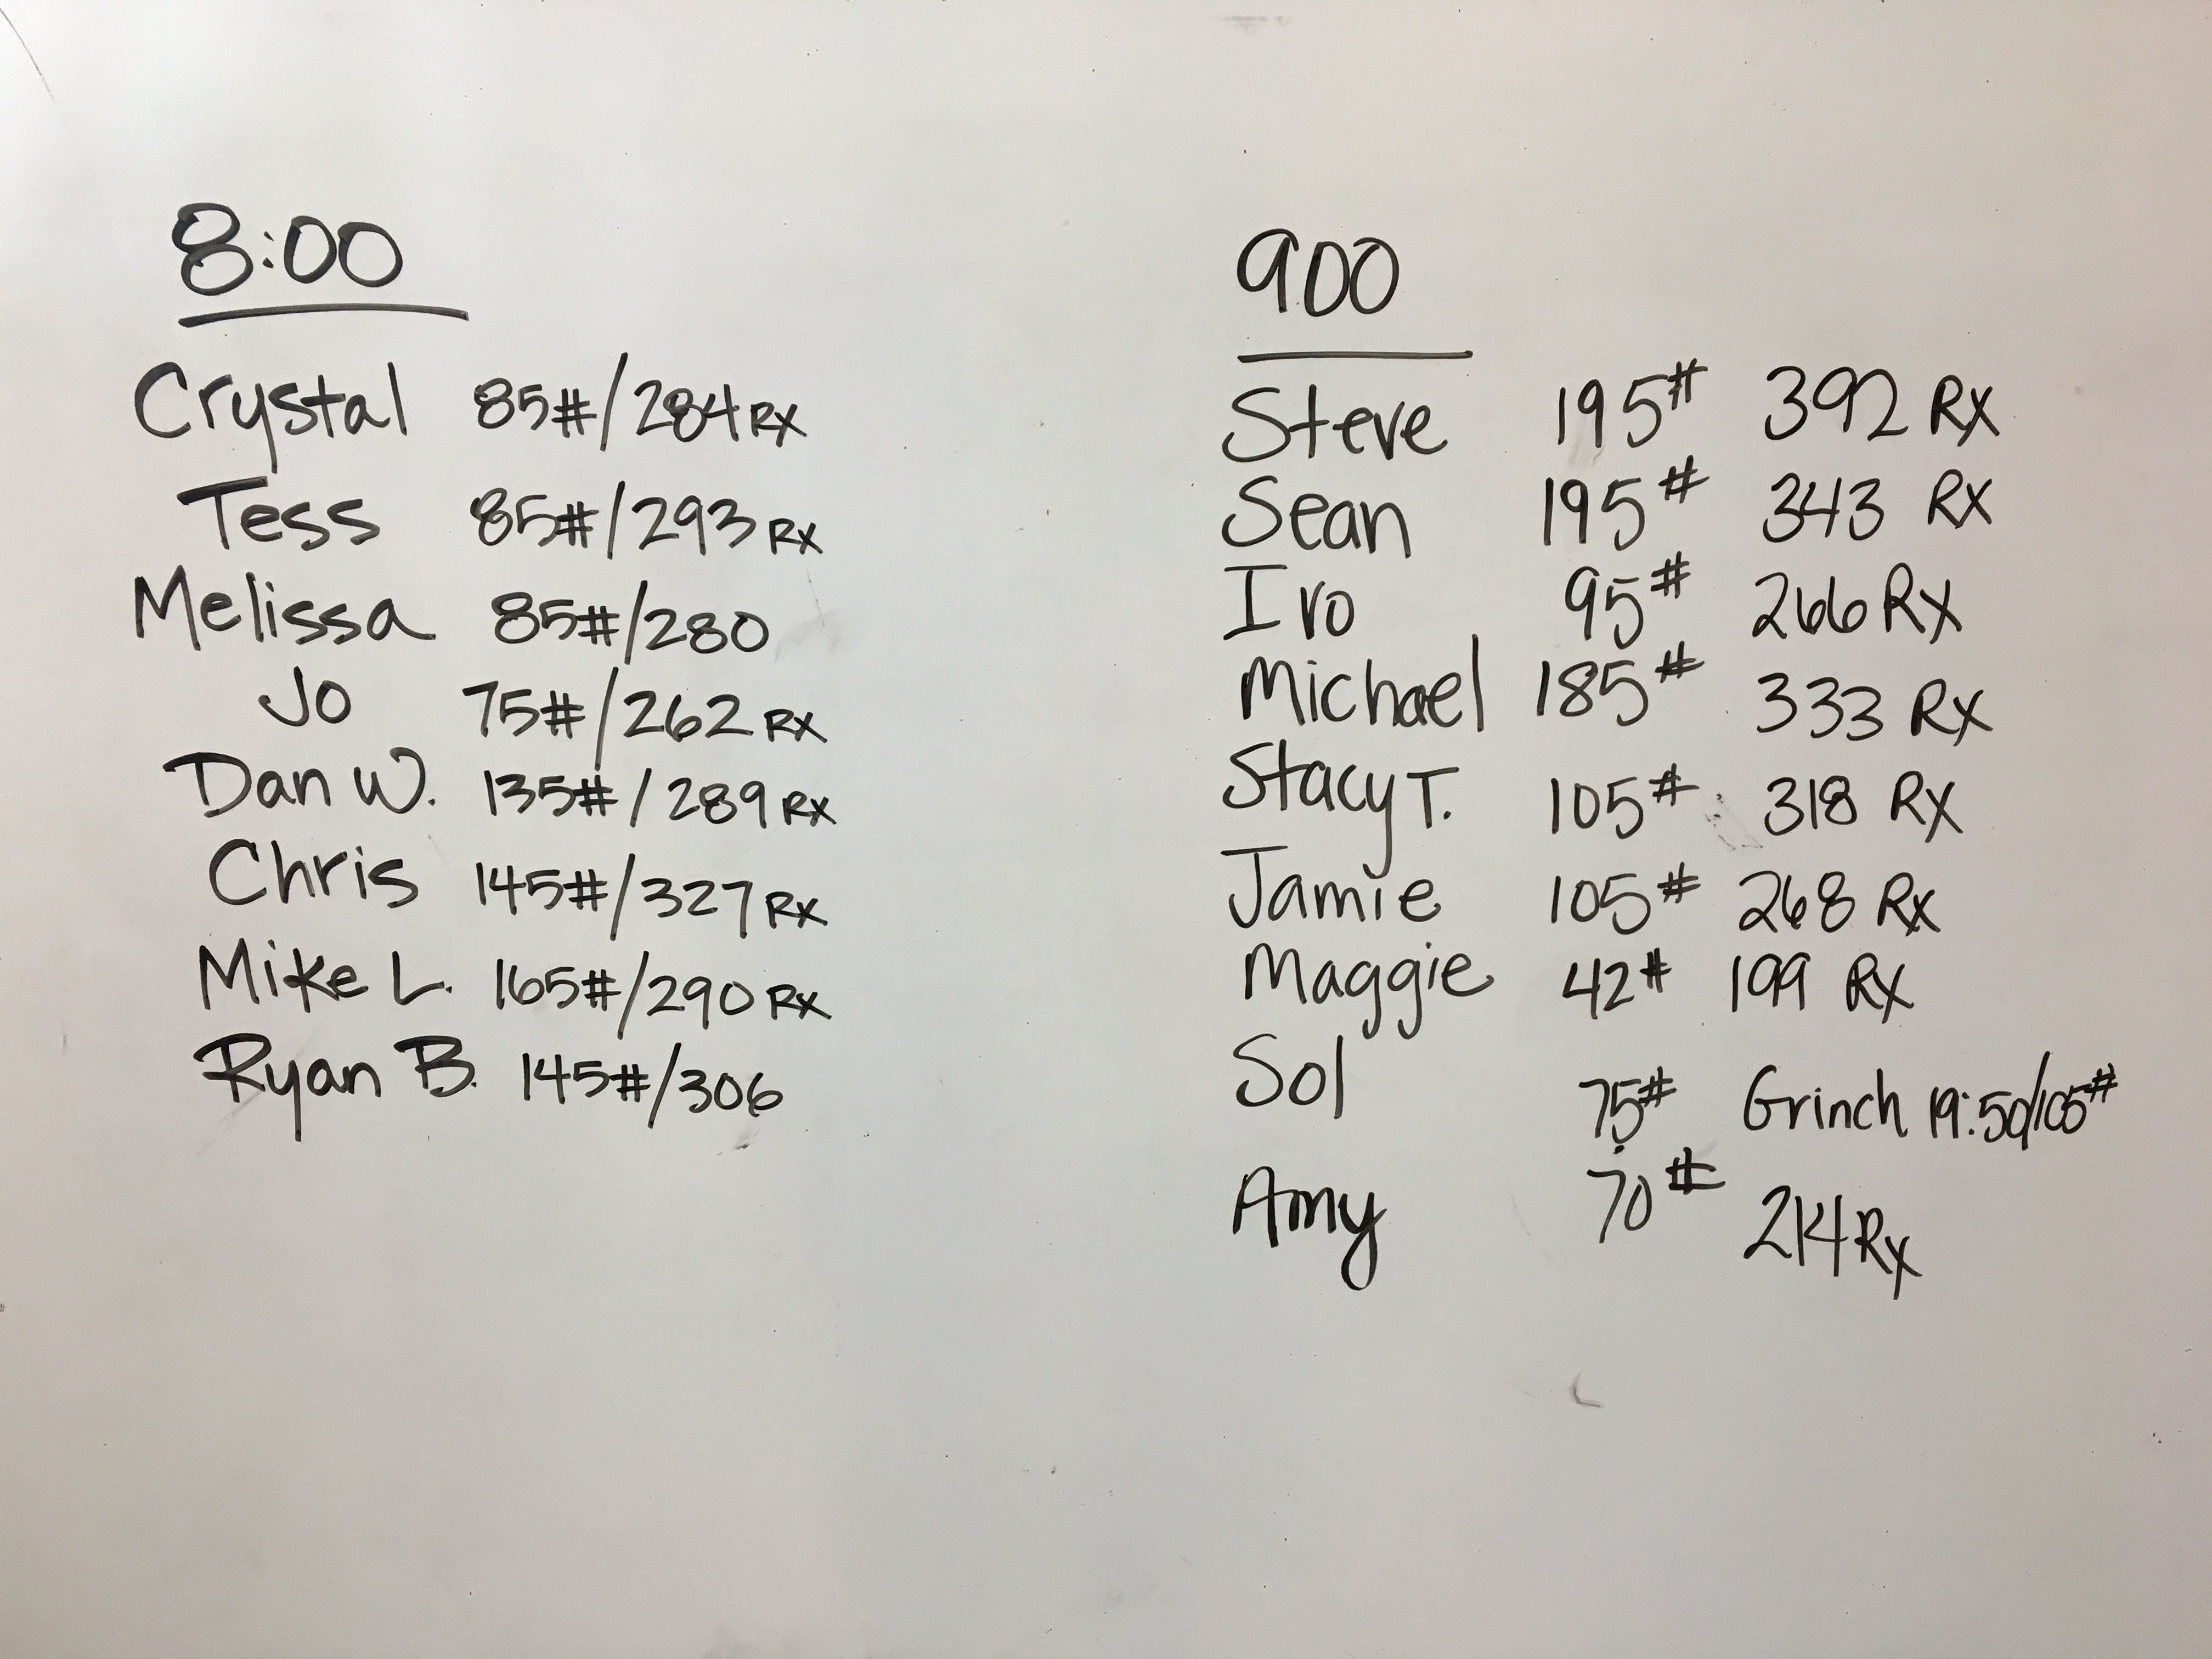 8:00
Crystal 85#/284 RX
Tess 85#/293 RX
Melissa 85#/280
Jo 75#/262 RX
Dan W. 135#/289 RX
Chris 145#/327 RX
Mike L. 165#/290 RX
Ryan B. 145#/306
900
Steve 195# 392 RX
Sean 195# 343 RX
Ivo 95# 266 RX
Michael 185# 333 RX
Stacy T. 105# 318 RX
Jamie 105# 268 RX
Maggie 42# 199 RX
Sol 75# Grinch 19:50/105#
Amy 70# 214 RX